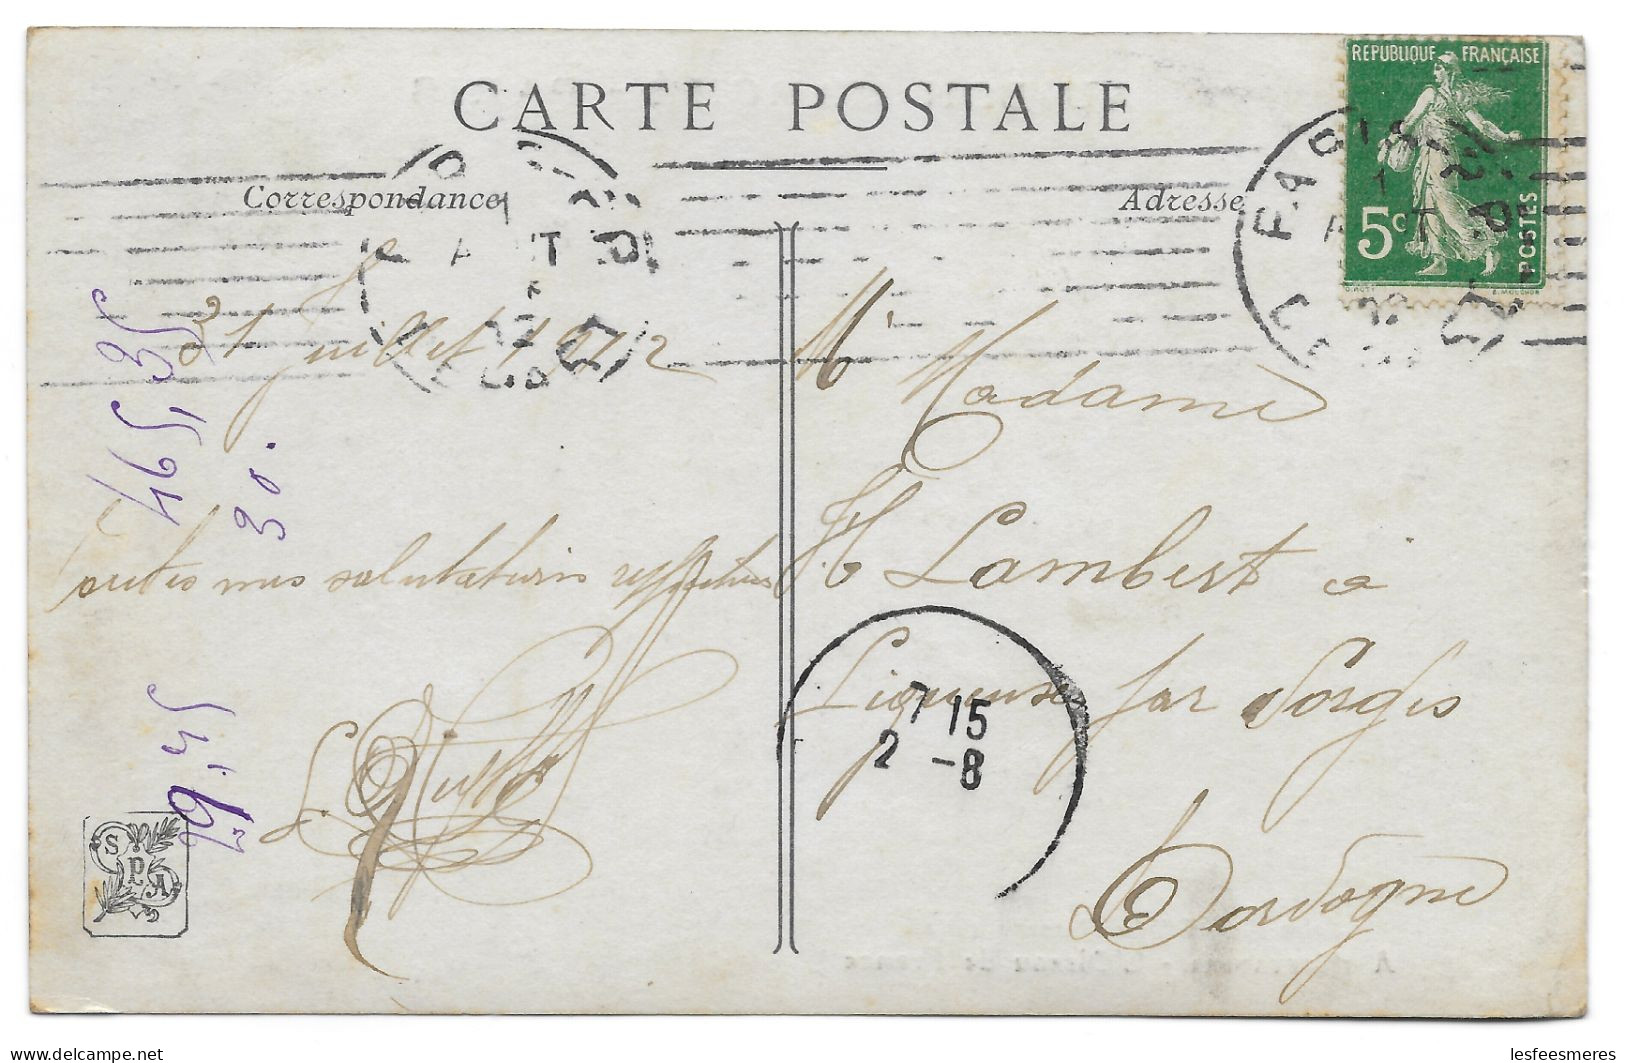 CARTE POSTALE
Correspondance
Adresse
REPUBLIQUE FRANÇAISE
5c
POSTES
PARIS
31 Juillet 1912
Toutes mes salutations respectueuses
Madame
H Lambert à
Ligueux par Sorges
Dordogne
7 15
2 -8
465,35
30.
SPA
www.delcampe.net
lesfeesmeres